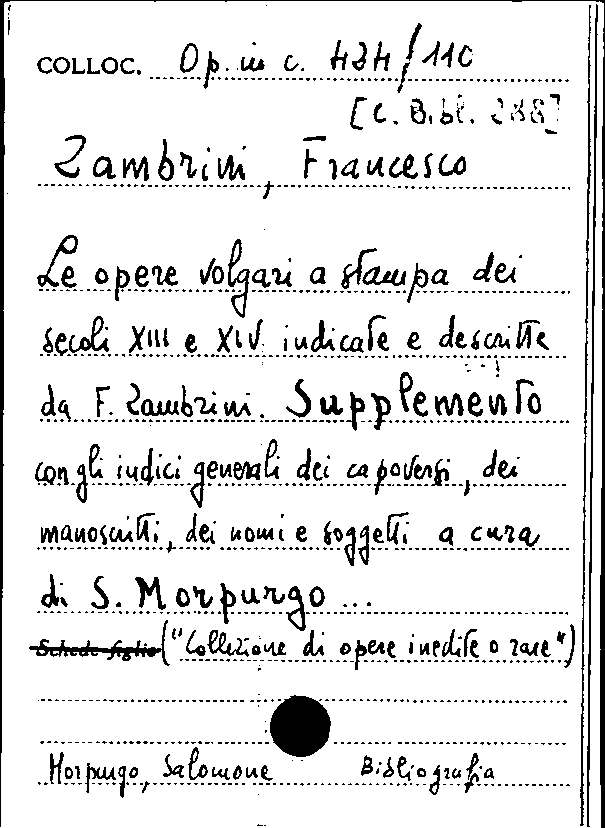 COLLOC. Op. in c. 434/110
[C. Bibl. 288]
Zambrini, Francesco
Le opere volgari a stampa dei
secoli XIII e XIV indicate e descritte
da F. Zambrini. Supplemento
con gli indici generali dei capoversi, dei
manoscritti, dei nomi e soggetti a cura
di S. Morpurgo...
Schede figlie ("Collezione di opere inedite o rare")
Morpurgo, Salomone Bibliografia